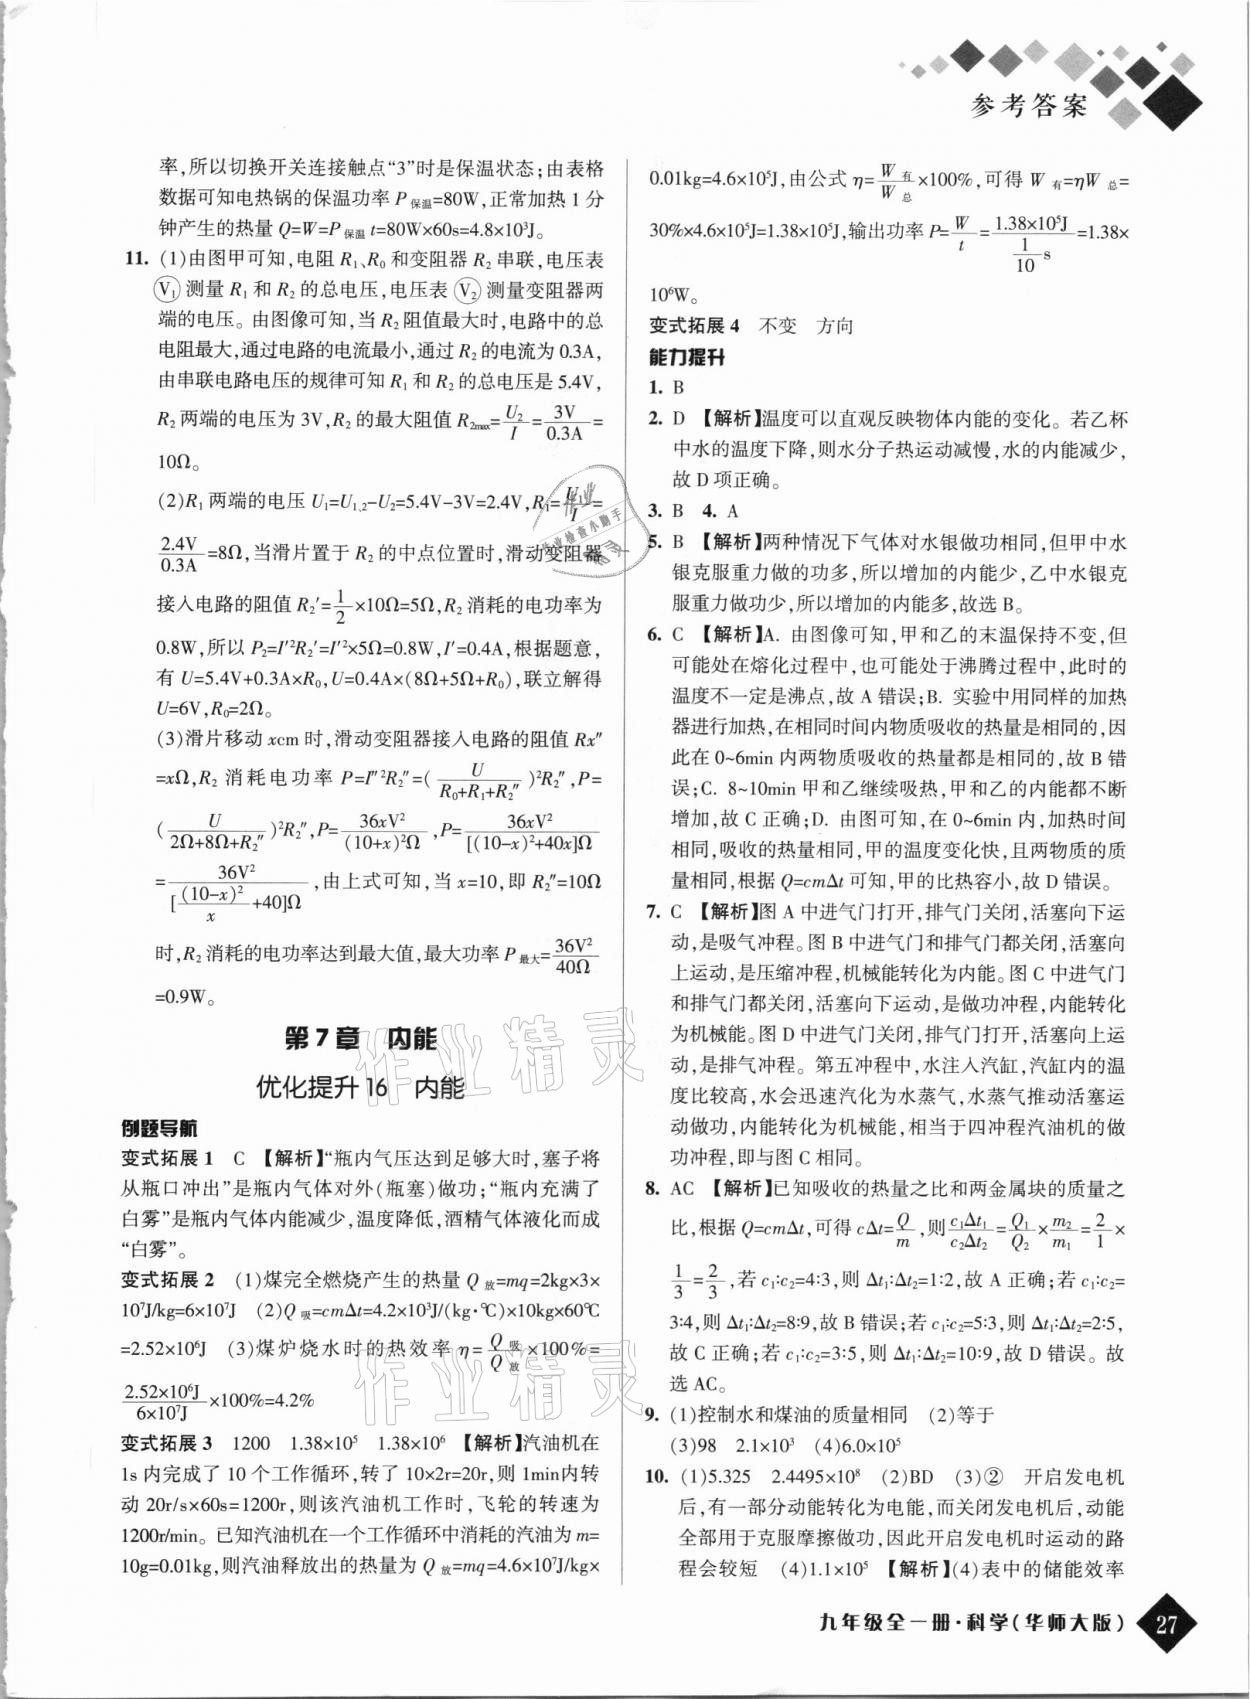 参考答案
率,所以切换开关连接触点“3”时是保温状态;由表格
数据可知电热锅的保温功率 P保温=80W,正常加热 1 分
钟产生的热量 Q=W=P保温 t=80W×60s=4.8×10³J。
11. (1)由图甲可知,电阻 R₁、R₀ 和变阻器 R₂ 串联,电压表
(V₁) 测量 R₁ 和 R₂ 的总电压,电压表 (V₂) 测量变阻器两
端的电压。由图像可知,当 R₂ 阻值最大时,电路中的总
电阻最大,通过电路的电流最小,通过 R₂ 的电流为 0.3A,
由串联电路电压的规律可知 R₁ 和 R₂ 的总电压是 5.4V,
R₂ 两端的电压为 3V,R₂ 的最大阻值 R₂max=U₂/I=3V/0.3A=
10Ω。
(2)R₁ 两端的电压 U₁=U₁,₂-U₂=5.4V-3V=2.4V,R₁=U₁/I=
2.4V/0.3A=8Ω,当滑片置于 R₂ 的中点位置时,滑动变阻器
接入电路的阻值 R₂′=1/2×10Ω=5Ω,R₂ 消耗的电功率为
0.8W,所以 P₂=I′²R₂′=I′²×5Ω=0.8W,I′=0.4A,根据题意,
有 U=5.4V+0.3A×R₀,U=0.4A×(8Ω+5Ω+R₀),联立解得
U=6V,R₀=2Ω。
(3)滑片移动 xcm 时,滑动变阻器接入电路的阻值 Rx″
=xΩ,R₂ 消耗电功率 P=I″²R₂″=(U/(R₀+R₁+R₂″))²R₂″,P=
(U/(2Ω+8Ω+R₂″))²R₂″,P=36xV²/((10+x)²Ω),P=36xV²/([(10-x)²+40x]Ω)
=36V²/([(10-x)²/x+40]Ω),由上式可知,当 x=10,即 R₂″=10Ω
时,R₂ 消耗的电功率达到最大值,最大功率 P最大=36V²/40Ω
=0.9W。
第 7 章 内能
优化提升 16 内能
例题导航
变式拓展 1 C 【解析】“瓶内气压达到足够大时,塞子将
从瓶口冲出”是瓶内气体对外(瓶塞)做功;“瓶内充满了
白雾”是瓶内气体内能减少,温度降低,酒精气体液化而成
“白雾”。
变式拓展 2 (1)煤完全燃烧产生的热量 Q放=mq=2kg×3×
10⁷J/kg=6×10⁷J (2)Q吸=cmΔt=4.2×10³J/(kg·℃)×10kg×60℃
=2.52×10⁶J (3)煤炉烧水时的热效率 η=Q吸/Q放×100%=
2.52×10⁶J/6×10⁷J×100%=4.2%
变式拓展 3 1200 1.38×10⁵ 1.38×10⁶ 【解析】汽油机在
1s 内完成了 10 个工作循环,转了 10×2r=20r,则 1min内转
动 20r/s×60s=1200r,则该汽油机工作时,飞轮的转速为
1200r/min。已知汽油机在一个工作循环中消耗的汽油为 m=
10g=0.01kg,则汽油释放出的热量为 Q放=mq=4.6×10⁷J/kg×
0.01kg=4.6×10⁵J,由公式 η=W有/W总×100%,可得 W有=ηW总=
30%×4.6×10⁵J=1.38×10⁵J,输出功率 P=W/t=1.38×10⁵J/(1/10 s)=1.38×
10⁶W。
变式拓展 4 不变 方向
能力提升
1. B
2. D 【解析】温度可以直观反映物体内能的变化。若乙杯
中水的温度下降,则水分子热运动减慢,水的内能减少,
故 D 项正确。
3. B 4. A
5. B 【解析】两种情况下气体对水银做功相同,但甲中水
银克服重力做的功多,所以增加的内能少,乙中水银克
服重力做功少,所以增加的内能多,故选 B。
6. C 【解析】A. 由图像可知,甲和乙的末温保持不变,但
可能处在熔化过程中,也可能处于沸腾过程中,此时的
温度不一定是沸点,故 A 错误;B. 实验中用同样的加热
器进行加热,在相同时间内物质吸收的热量是相同的,因
此在 0~6min 内两物质吸收的热量都是相同的,故 B 错
误;C. 8~10min 甲和乙继续吸热,甲和乙的内能都不断
增加,故 C 正确;D. 由图可知,在 0~6min 内,加热时间
相同,吸收的热量相同,甲的温度变化快,且两物质的质
量相同,根据 Q=cmΔt 可知,甲的比热容小,故 D 错误。
7. C 【解析】图 A 中进气门打开,排气门关闭,活塞向下运
动,是吸气冲程。图 B 中进气门和排气门都关闭,活塞向
上运动,是压缩冲程,机械能转化为内能。图 C 中进气门
和排气门都关闭,活塞向下运动,是做功冲程,内能转化
为机械能。图 D 中进气门关闭,排气门打开,活塞向上运
动,是排气冲程。第五冲程中,水注入汽缸,汽缸内的温
度比较高,水会迅速汽化为水蒸气,水蒸气推动活塞运
动做功,内能转化为机械能,相当于四冲程汽油机的做
功冲程,即与图 C 相同。
8. AC 【解析】已知吸收的热量之比和两金属块的质量之
比,根据 Q=cmΔt,可得 cΔt=Q/m,则c₁Δt₁/c₂Δt₂=Q₁/Q₂×m₂/m₁=2/1×
1/3=2/3,若 c₁∶c₂=4∶3,则 Δt₁∶Δt₂=1∶2,故 A 正确;若 c₁∶c₂=
3∶4,则 Δt₁∶Δt₂=8∶9,故 B 错误;若 c₁∶c₂=5∶3,则 Δt₁∶Δt₂=2∶5,
故 C 正确;若 c₁∶c₂=3∶5,则 Δt₁∶Δt₂=10∶9,故 D 错误。故
选 AC。
9. (1)控制水和煤油的质量相同 (2)等于
(3)98 2.1×10³ (4)6.0×10⁵
10. (1)5.325 2.4495×10⁸ (2)BD (3)② 开启发电机
后,有一部分动能转化为电能,而关闭发电机后,动能
全部用于克服摩擦做功,因此开启发电机时运动的路
程会较短 (4)1.1×10⁵ 【解析】(4)表中的储能效率
九年级全一册·科学(华师大版) 27
作业精灵
作业精灵
作业
作业检查小助手